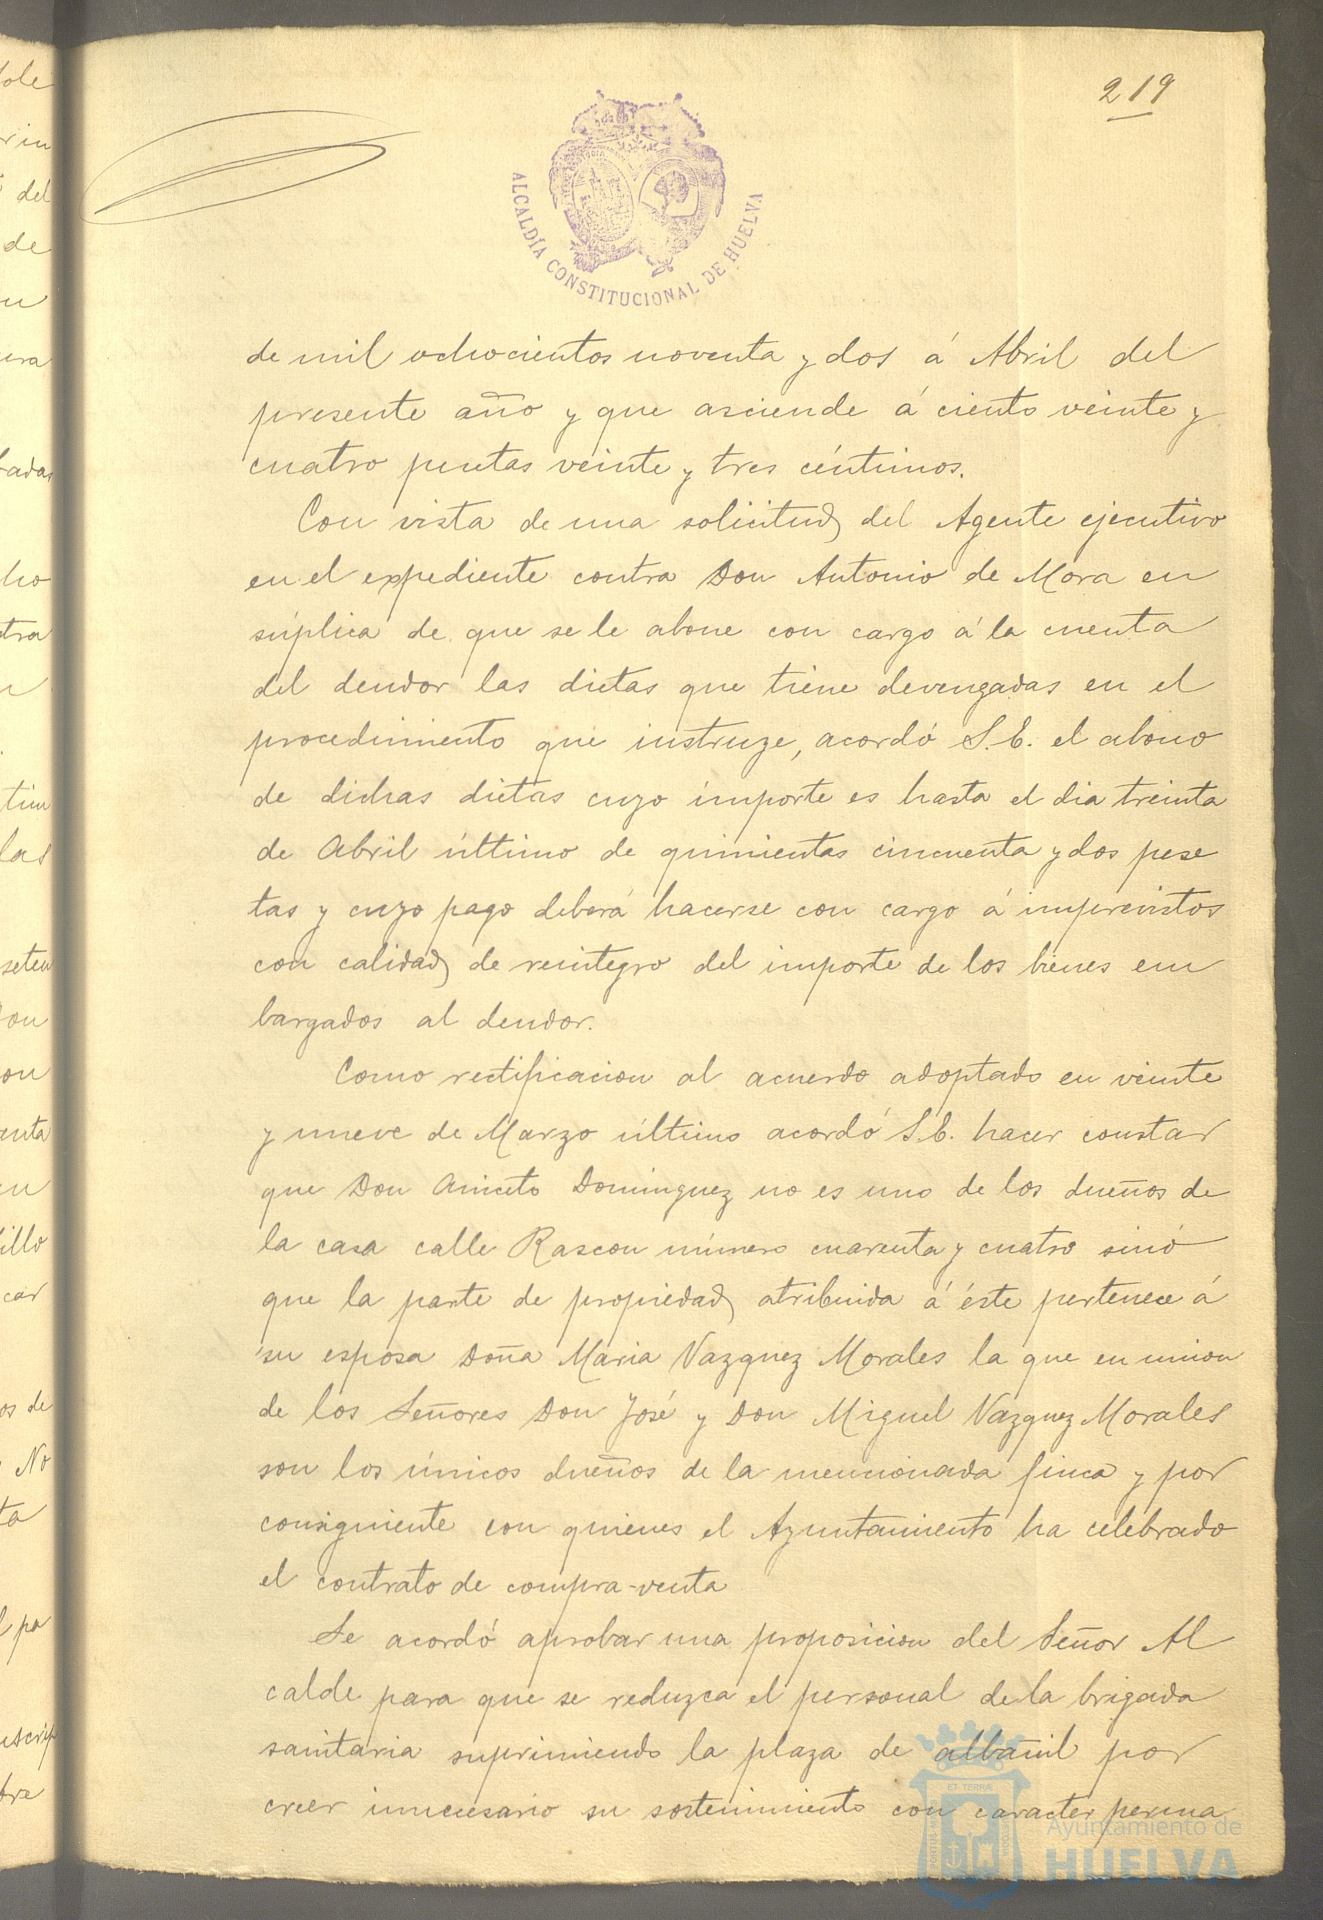 219
ALCALDÍA CONSTITUCIONAL DE HUELVA
de mil ochocientos noventa y dos á Abril del
presente año y que asciende á ciento veinte y
cuatro pesetas veinte y tres céntimos.
Con vista de una solicitud del Agente ejecutivo
en el expediente contra Don Antonio de Mora en
súplica de que se le abone con cargo á la cuenta
del deudor las dietas que tiene devengadas en el
procedimiento que instruye, acordó S.E. el abono
de dichas dietas cuyo importe es hasta el dia treinta
de Abril último de quinientas cincuenta y dos pese
tas y cuyo pago deberá hacerse con cargo á imprevistos
con calidad de reintegro del importe de los bienes em
bargados al deudor.
Como rectificacion al acuerdo adoptado en veinte
y nueve de Marzo último acordó S.E. hacer constar
que Don Aniceto Dominguez no es uno de los dueños de
la casa calle Rascon número cuarenta y cuatro sinó
que la parte de propiedad atribuida á éste pertenece á
su esposa Doña Maria Vazquez Morales la que en union
de los Señores Don José y Don Miguel Vazquez Morales
son los únicos dueños de la mencionada finca y por
consiguiente con quienes el Ayuntamiento ha celebrado
el contrato de compra-venta
Se acordó aprobar una proposicion del Señor Al
calde para que se reduzca el personal de la brigada
sanitaria suprimiendo la plaza de albañil por
creer innecesario su sostenimiento con caracter perma
Ayuntamiento de
HUELVA